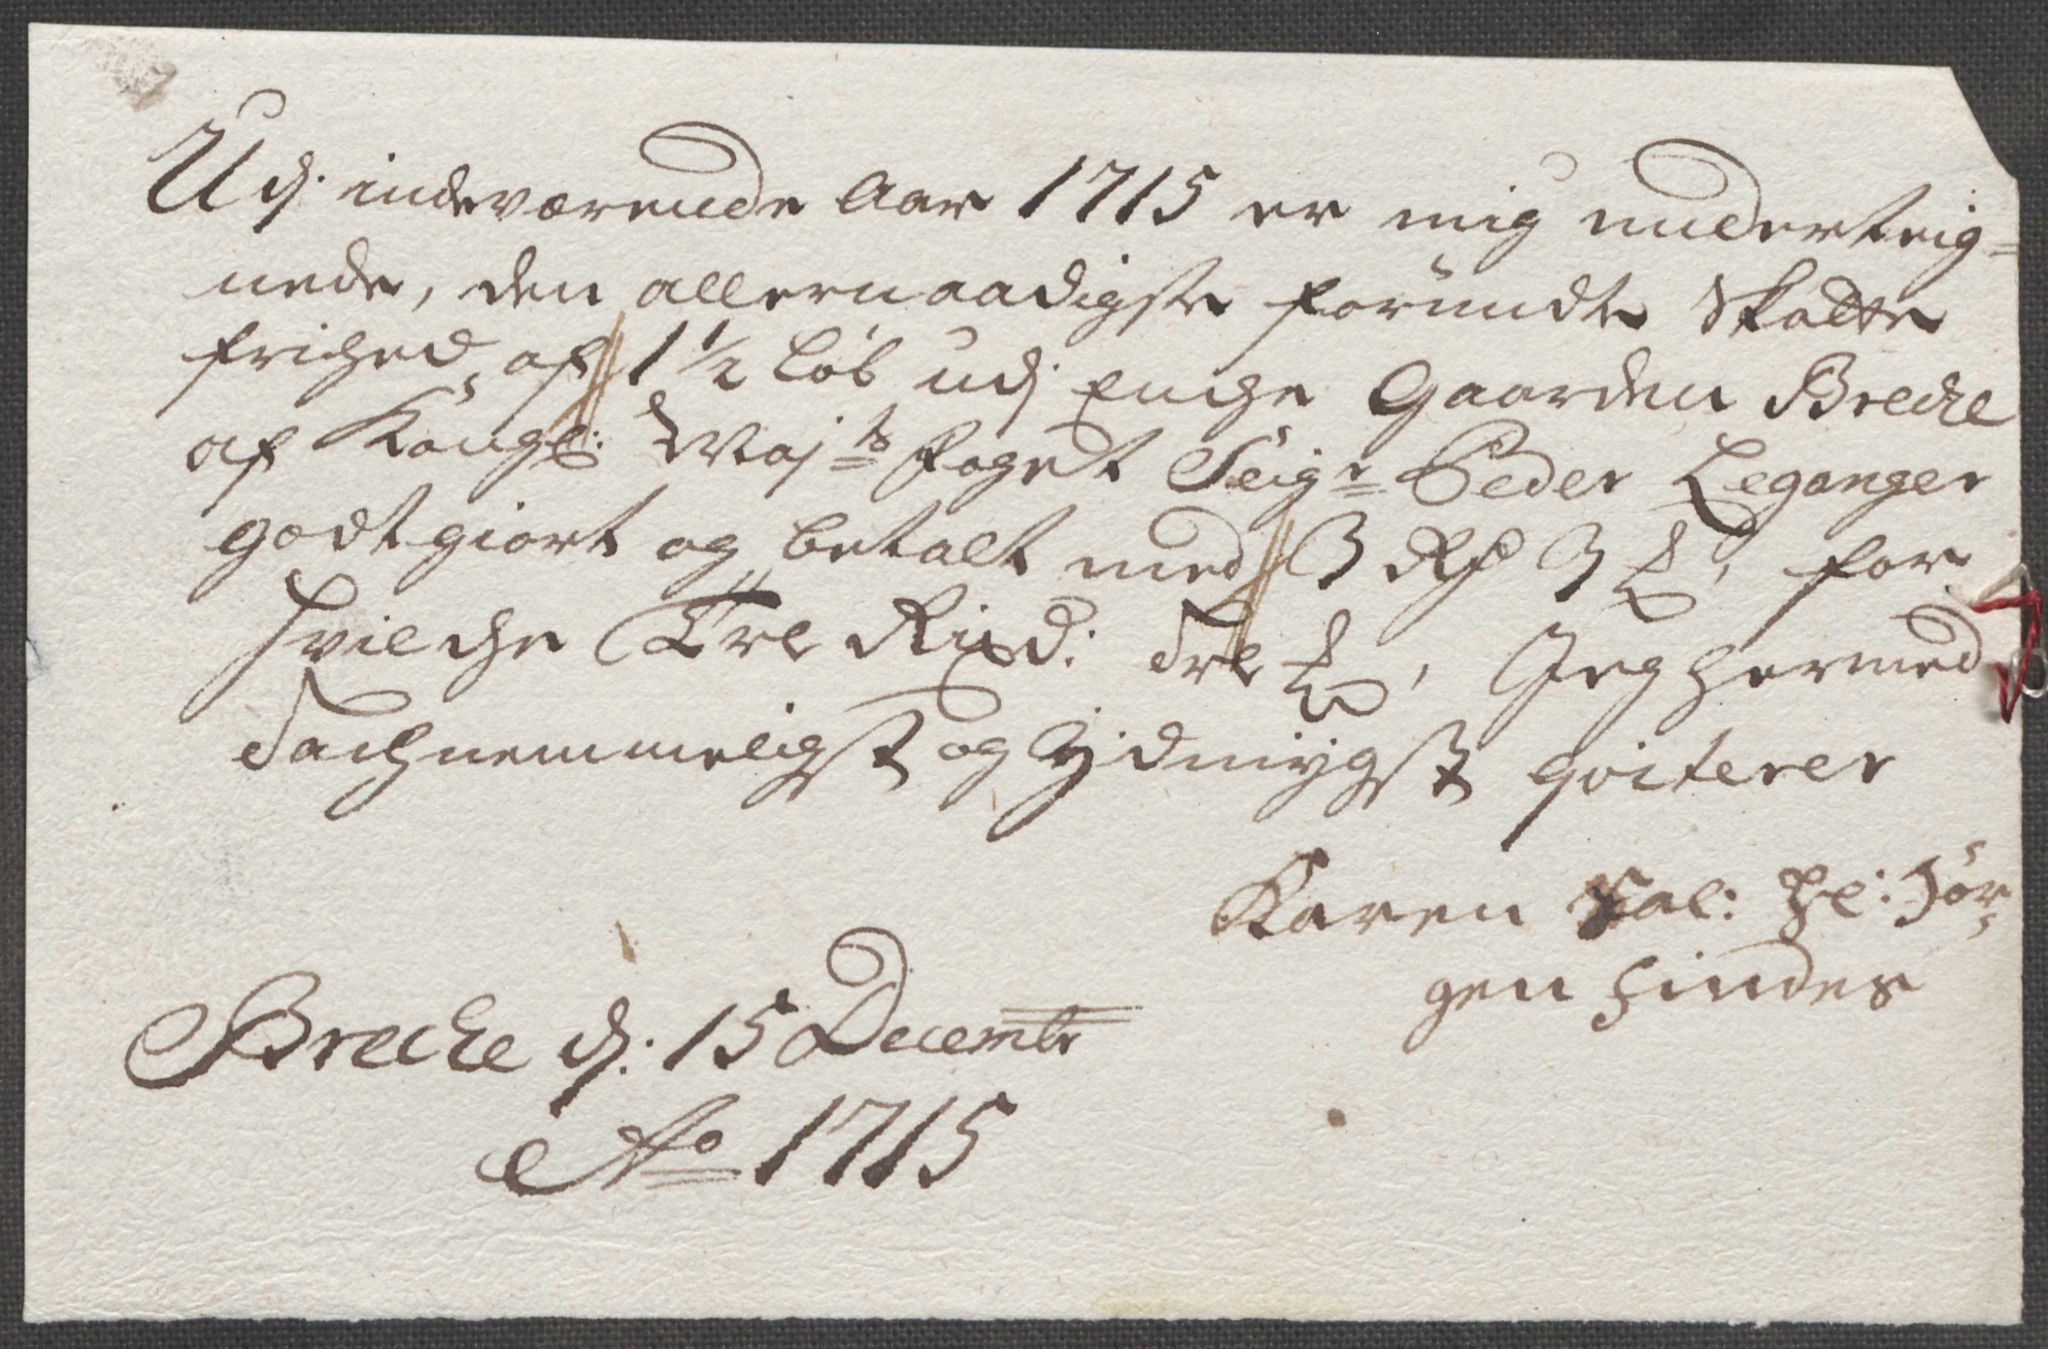 Udj indeværende Aar 1715 er mig underteig-
nede, den allernaadigste forundte Skatte
friehed, af 1 1/2 Løb udj Enche Gaarden Breche
af Kongl: Maj:ts foget Seig:r Peder Leganger
godtgiort og betalt med 3 Rd 3 ß, for
hvilche Tre Rixd: Tre ß, Jeg hermed
Tachnemmeligst og ydmygst qviterer
Karen Sal: Hl: Jør-
gen Findes
Breche dj: 15 Decembr
Ao 1715